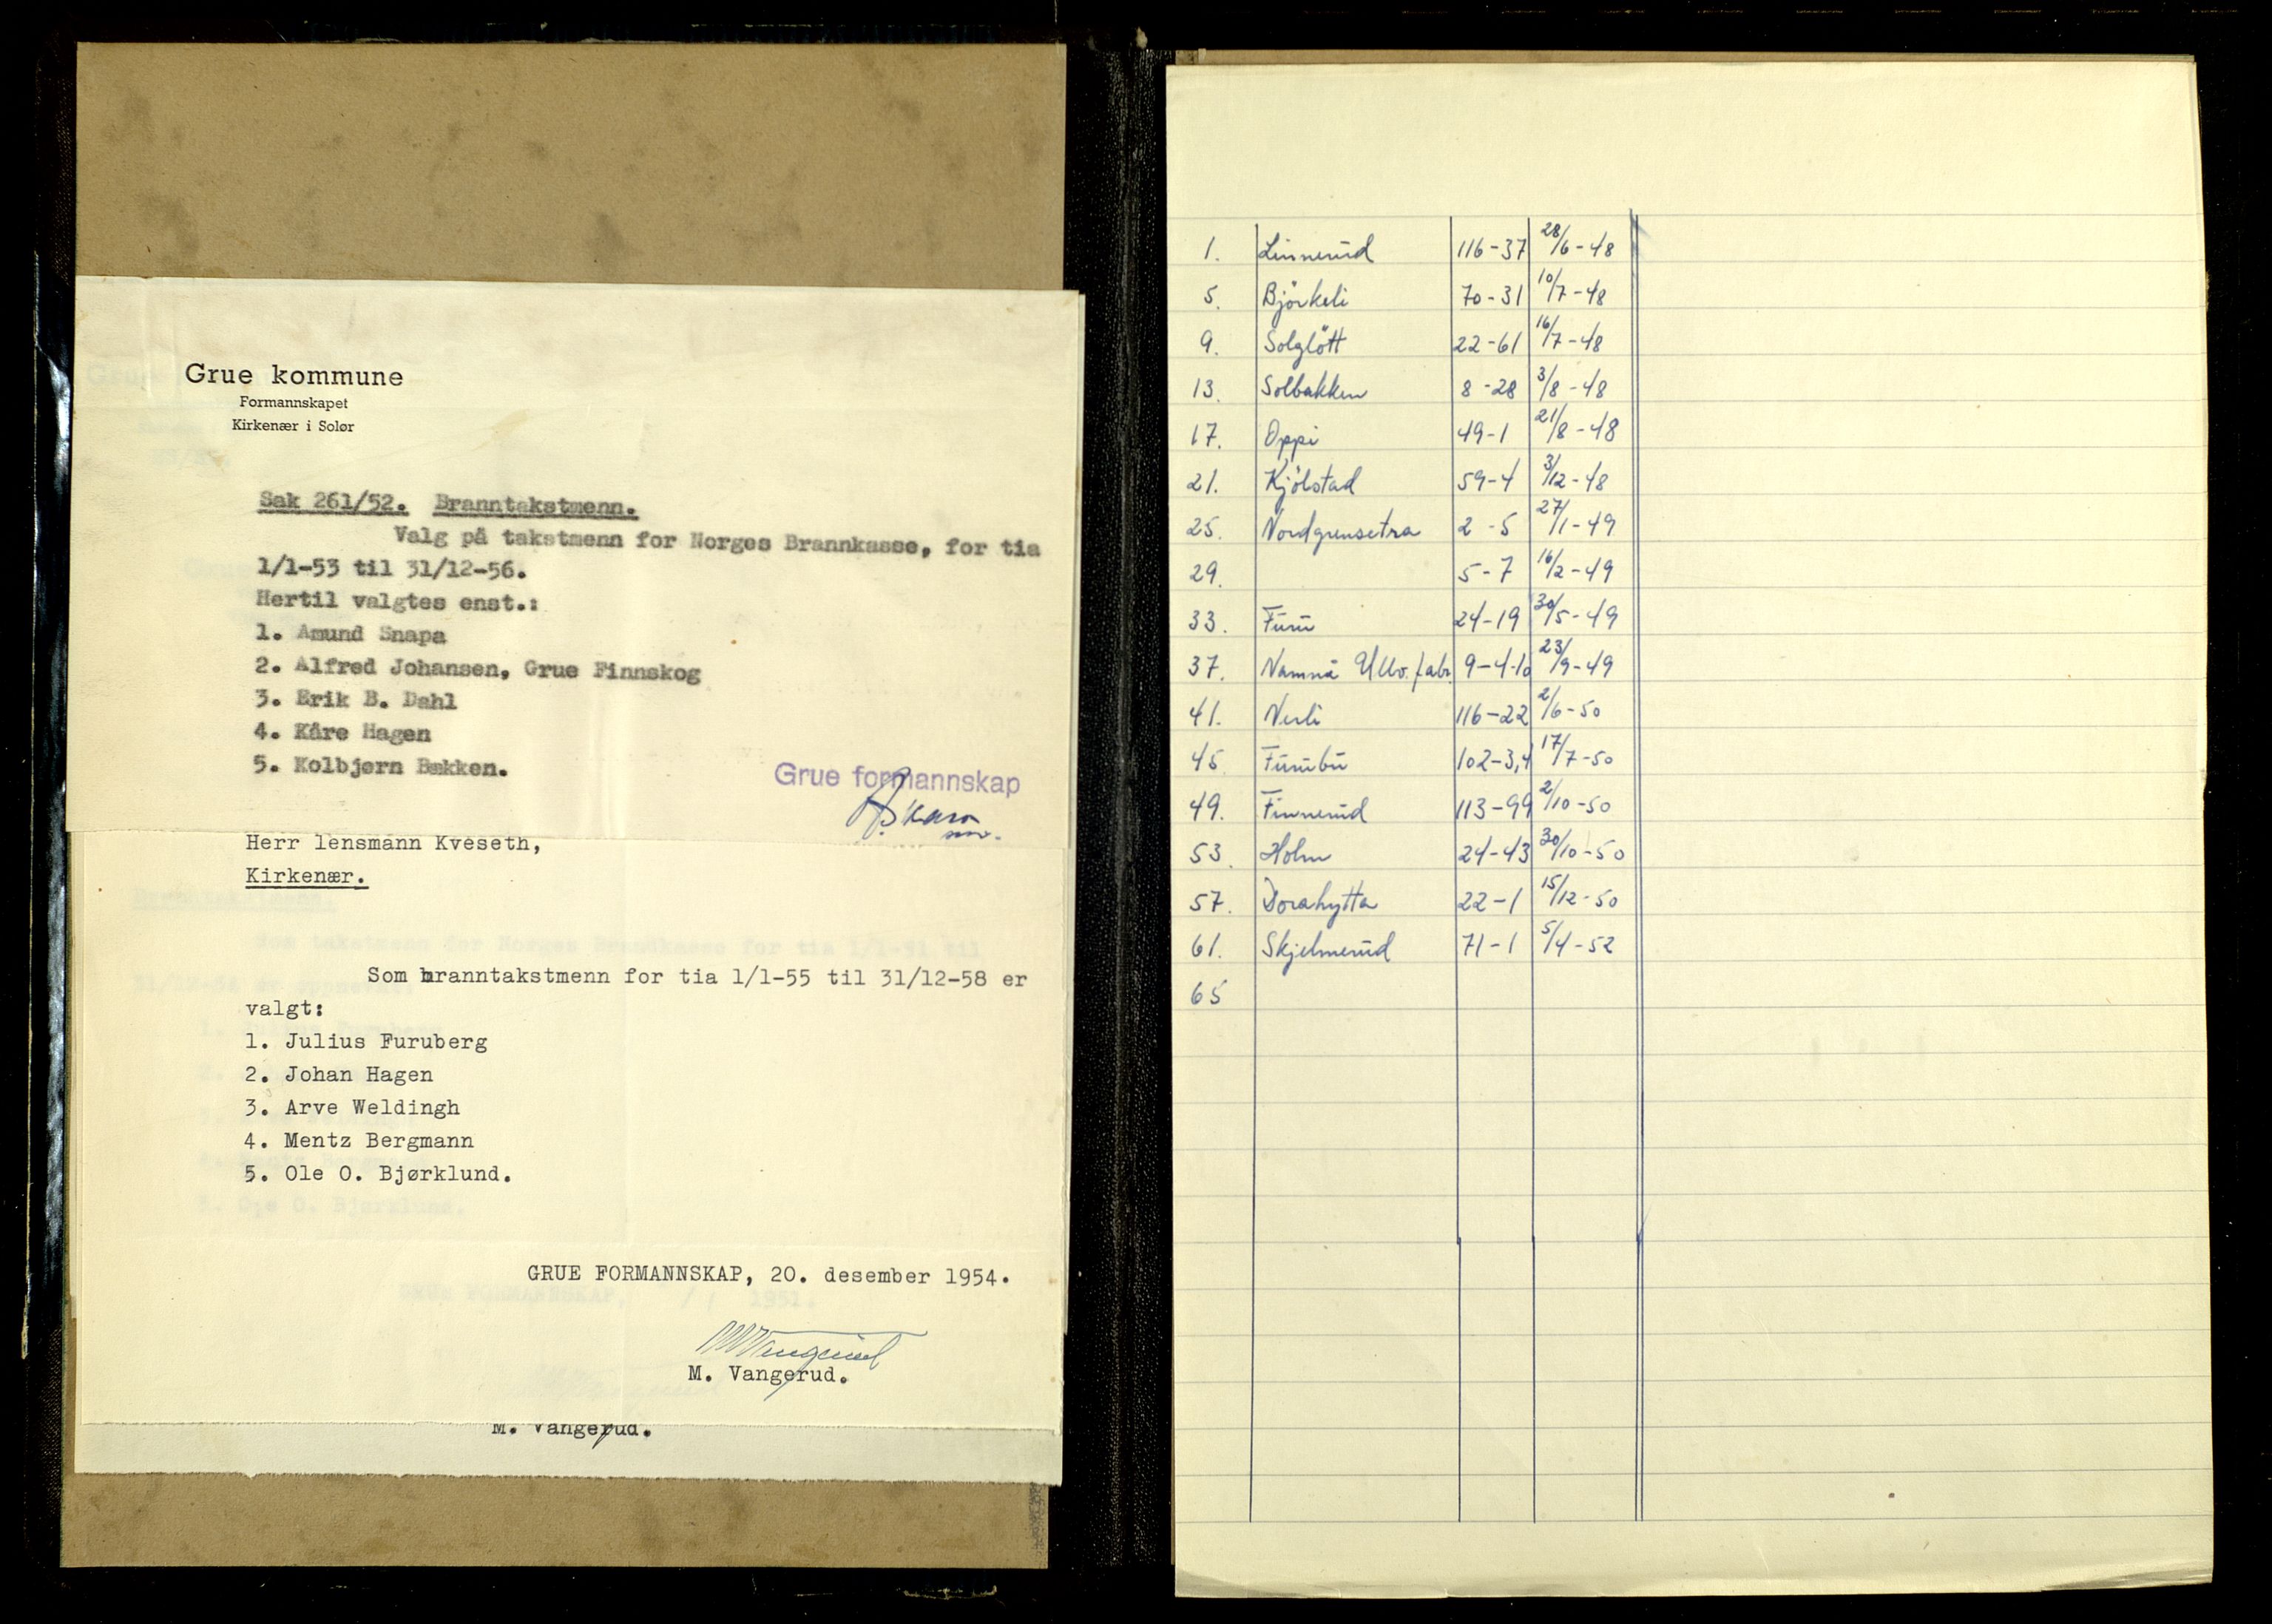 Grue kommune
Formannskapet
Kirkenær i Solør
Sak 261/52. Branntakstmenn.
Valg på takstmenn for Norges Brannkasse, for tia
1/1-53 til 31/12-56.
Hertil valgtes enst.:
1. Amund Snapa
2. Alfred Johansen, Grue Finnskog
3. Erik B. Dahl
4. Kåre Hagen
5. Kolbjørn Bækken.
Grue formannskap
Herr lensmann Kveseth,
Kirkenær.
Som branntakstmenn for tia 1/1-55 til 31/12-58 er
valgt:
1. Julius Furuberg
2. Johan Hagen
3. Arve Weldingh
4. Mentz Bergmann
5. Ole O. Bjørklund.
GRUE FORMANNSKAP, 20. desember 1954.
M Vangerud
M. Vangerud.
M. Vangerud.
1. Linnerud 116-37 28/6-48
5. Björkeli 70-31 10/7-48
9. Solglött 22-61 16/7-48
13. Solbakken 8-28 3/8-48
17. Oppi 49-1 21/8-48
21. Kjölstad 59-4 3/12-48
25. Nordgrensetra 2-5 27/1-49
29. 5-7 16/2-49
33. Furu 24-19 30/5-49
37. Namnå Ullv. fabr. 9-4-10 23/9-49
41. Nerli 116-22 2/6-50
45 Furubu 102-3,4 17/7-50
49. Finnerud 113-99 2/10-50
53. Holm 24-43 30/10-50
57. Dorahytta 22-1 15/12-50
61. Skjelmerud 71-1 5/4-52
65